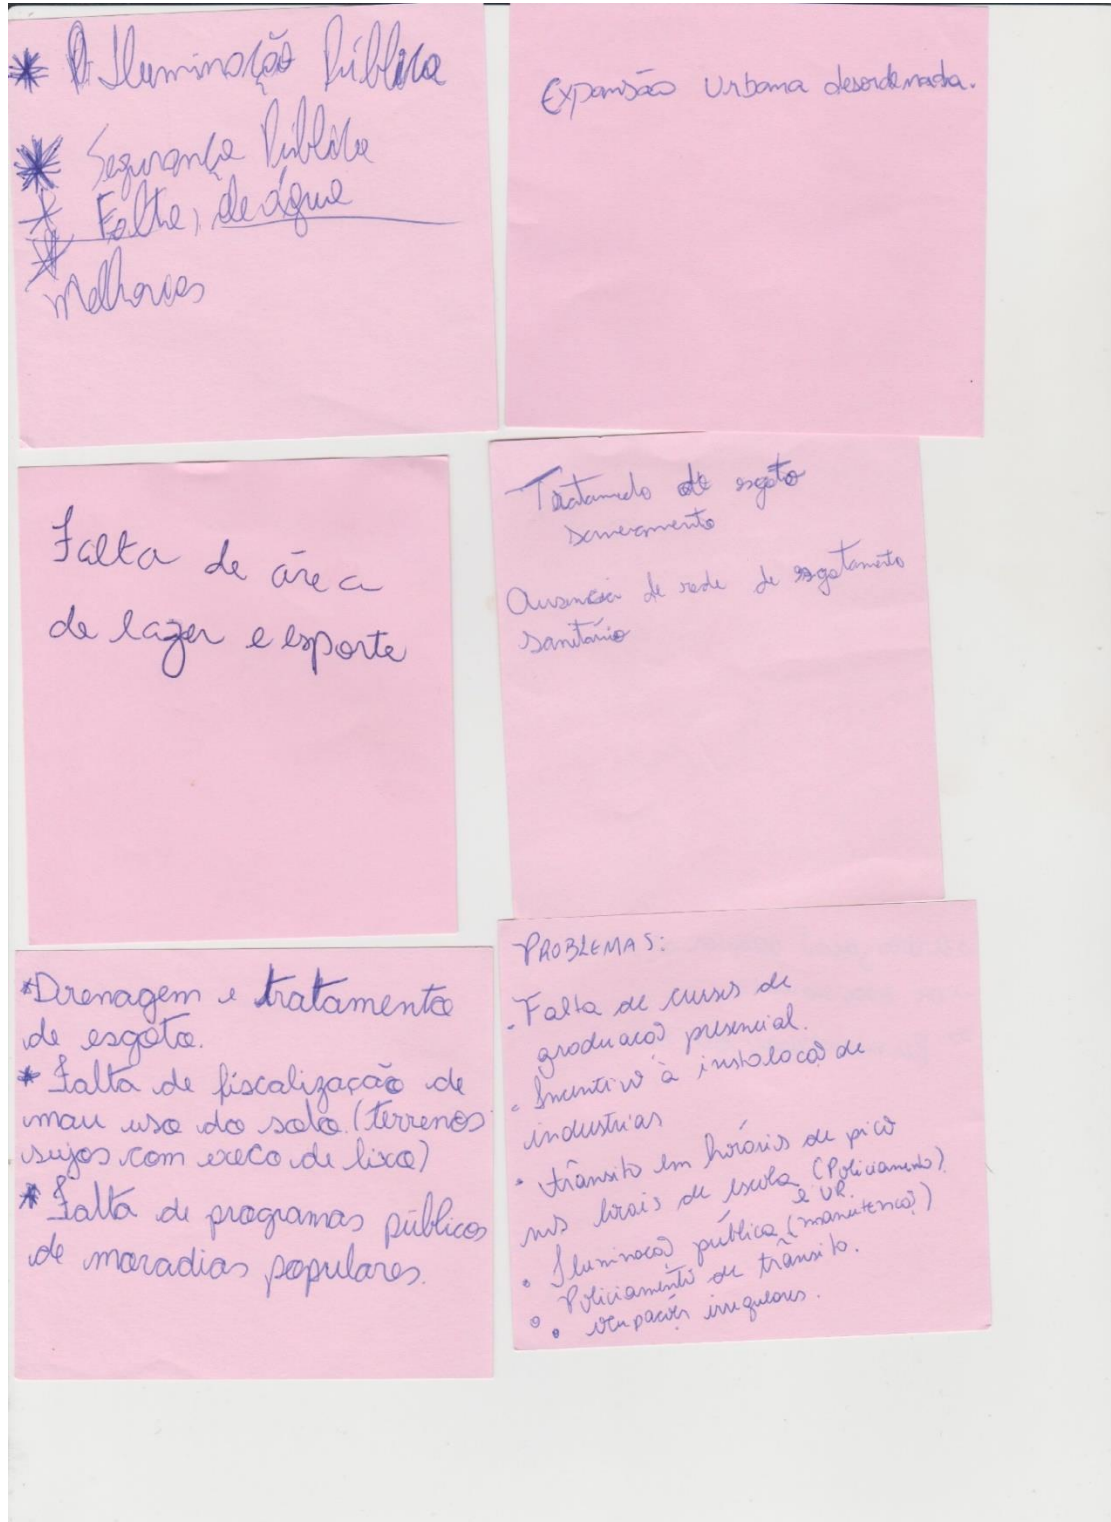 * Iluminação Pública
* Segurança Pública
* Falta, de água
*
Melhorias
Expansão Urbana desordenada.
Falta de área
de lazer e esporte
Tratamedo de esgoto
saneamento
Ausência de rede de esgotamento
sanitário
*Drenagem e tratamento
de esgoto.
* Falta de fiscalização de
mau uso do solo. (terrenos
sujos com exeço de lixo)
* Falta de programas públicos
de moradias populares.
PROBLEMAS:
. Falta de cursos de
graduação presencial.
. Incentivo à instalação de
industrias
. trânsito em horários de pico
nos locais de escola (Policiamento)
. Iluminação pública (manutenção)
. Policiamento de trânsito.
. ocupações irregulares.